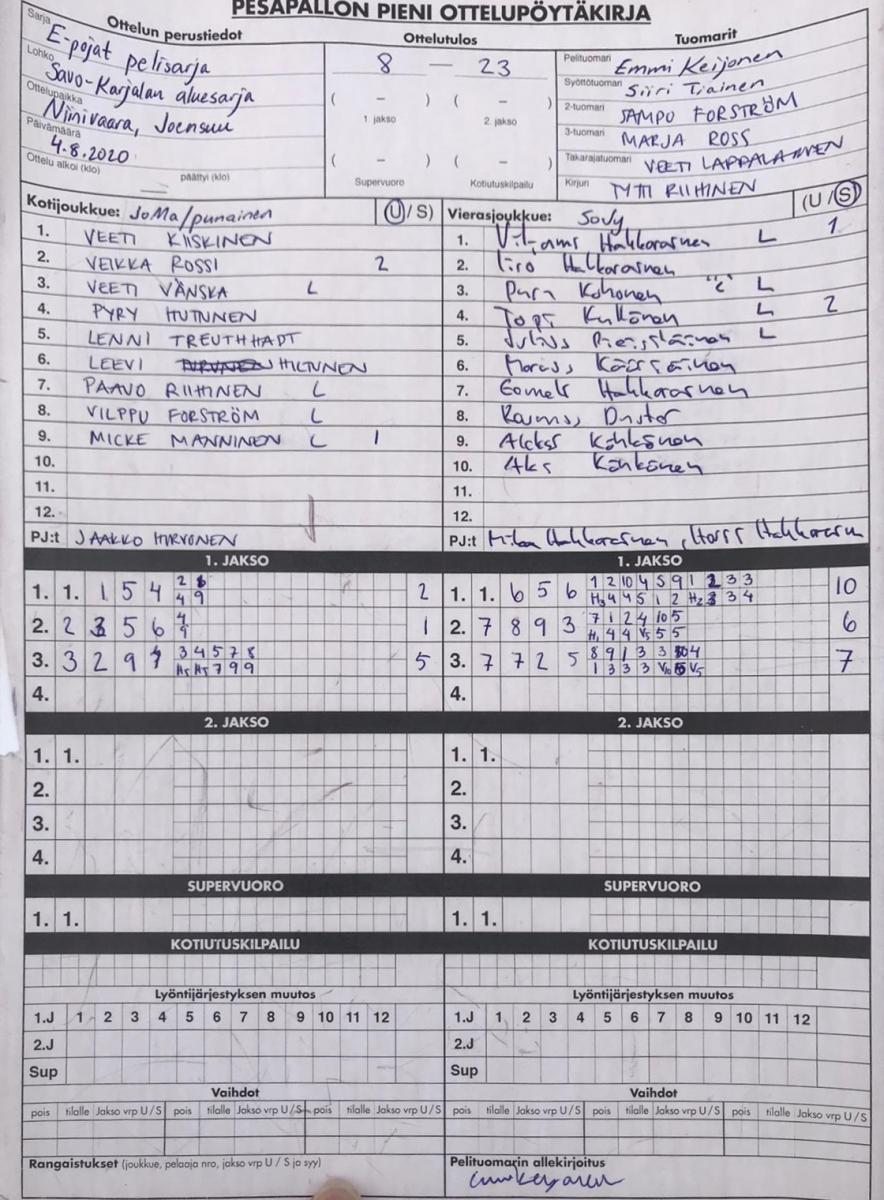 PESÄPALLON PIENI OTTELUPÖYTÄKIRJA
Ottelun perustiedot
Sarja E-pojat pelisarja
Lohko Savo-Karjalan aluesarja
Ottelupaikka Niinivaara, Joensuu
Päivämäärä 4.8.2020
Ottelu alkoi (klo) päättyi (klo)
Ottelutulos
8 — 23
( – ) ( – )
1. jakso 2. jakso
( – ) ( – )
Supervuoro Kotiutuskilpailu
Tuomarit
Pelituomari Emmi Keijonen
Syöttötuomari Siiri Tiainen
2-tuomari SAMPO FORSTRÖM
3-tuomari MARJA ROSS
Takarajatuomari VEETI LAPPALAINEN
Kirjuri TYTTI RIIHINEN
Kotijoukkue: JoMa/punainen (U/S)
1. VEETI KIISKINEN
2. VEIKKA ROSSI 2
3. VEETI VÄNSKÄ L
4. PYRY HUTUNNEN
5. LENNI TREUTHHADT
6. LEEVI HILTUNEN
7. PAAVO RIIHINEN L
8. VILPPU FORSTRÖM L
9. MICKE MANNINEN L 1
10.
11.
12.
PJ:t JAAKKO HIRVONEN
Vierasjoukkue: (U/S)
1. Hakkarainen L 1
2. Hakkarainen
3. Kohonen "c" L
4. L 2
5. L
6.
7. Hakkarainen
8.
9. Kähkönen
10. Kähkönen
11.
12.
PJ:t Hakkarainen,
1. JAKSO
1. 1. 1 5 4 2 6 2
4 9
2. 2 3 5 6 4 1
9
3. 3 2 9 1 3 4 5 7 8 5
H5 H5 7 9 9
4.
1. JAKSO
1. 1. 6 5 6 1 2 10 4 5 9 1 2 3 3 10
H3 4 4 5 1 2 H2 3 3 4
2. 7 8 9 3 7 1 2 4 10 5 6
H1 4 4 V5 5 5
3. 7 7 2 5 8 9 1 3 3 10 4 7
1 3 3 3 V10 5 V5
4.
2. JAKSO
1. 1.
2.
3.
4.
2. JAKSO
1. 1.
2.
3.
4.
SUPERVUORO
1. 1.
SUPERVUORO
1. 1.
KOTIUTUSKILPAILU
KOTIUTUSKILPAILU
Lyöntijärjestyksen muutos
1.J 1 2 3 4 5 6 7 8 9 10 11 12
2.J
Sup
Lyöntijärjestyksen muutos
1.J 1 2 3 4 5 6 7 8 9 10 11 12
2.J
Sup
Vaihdot
pois tilalle Jakso vrp U/S pois tilalle Jakso vrp U/S pois tilalle Jakso vrp U/S
Vaihdot
pois tilalle Jakso vrp U/S pois tilalle Jakso vrp U/S pois tilalle Jakso vrp U/S
Rangaistukset (joukkue, pelaaja nro, jakso vrp U / S ja syy)
Pelituomarin allekirjoitus